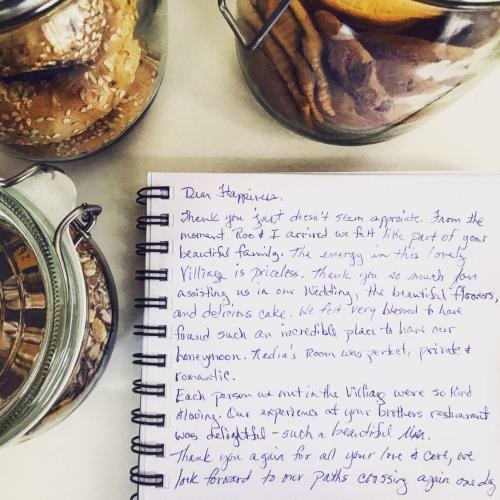 Dear Happiness,
Thank you just doesn't seem approiate. From the
moment Roe & I arrived we felt like part of your
beautiful family. The energy in this lovely
Villiage is priceless. Thank you so much for
assisting us in our Wedding, the beautiful flowers,
and delicious cake. We felt very blessed to have
found such an incredible place to have our
honeymoon. Nadia's Room was perfect, private &
romantic.
Each person we met in the Villiag were so kind
& loving. Our experience at your brothers restuarant
was delightful - such a beautiful
Thank you again for all your love & care, we
look forward to our paths crossing again one day